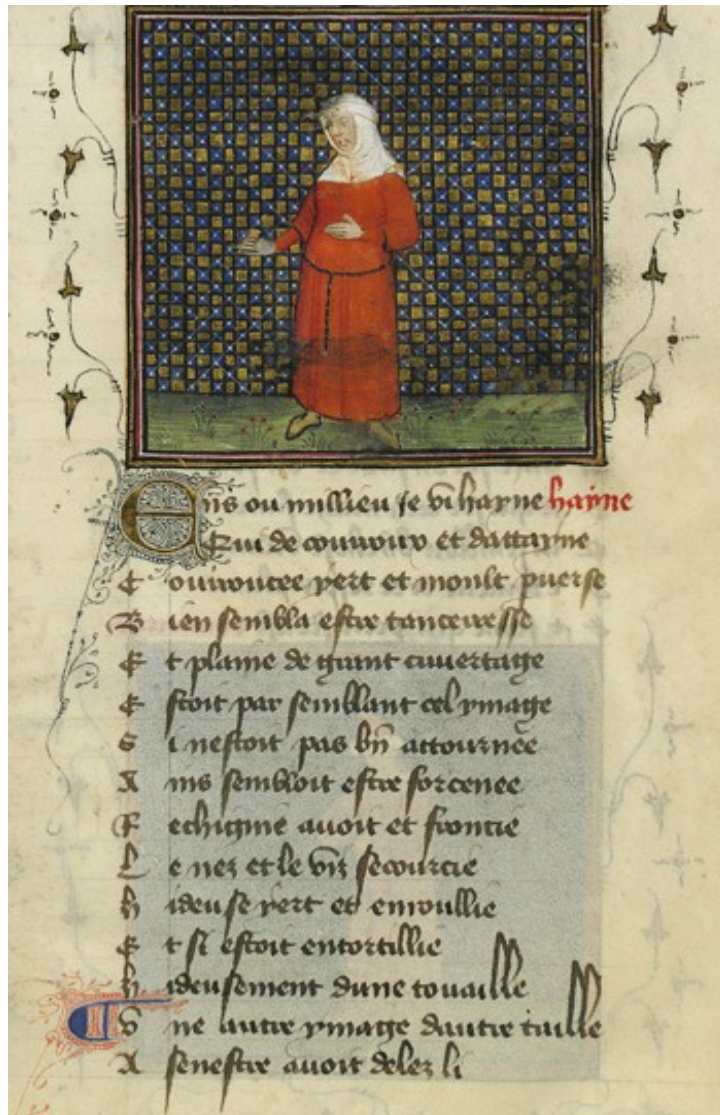 Ens ou millieu je vi hayne hayne
Qui de courroux et dattayne
Courroucee yert et moult pverse
Bien sembla estre tanceresse
Et plaine de grant cuvertage
Estoit par semblant cel ymage
Si nestoit pas bn attournee
Ains sembloit estre forcenee
Rechigne avoit et froncie
Le nez et le vis secourcie
Hideuse yert et enroullie
Et si estoit entortillie
Hideusement dune touaille
Une autre ymage dautre taille
A senestre avoit delez li